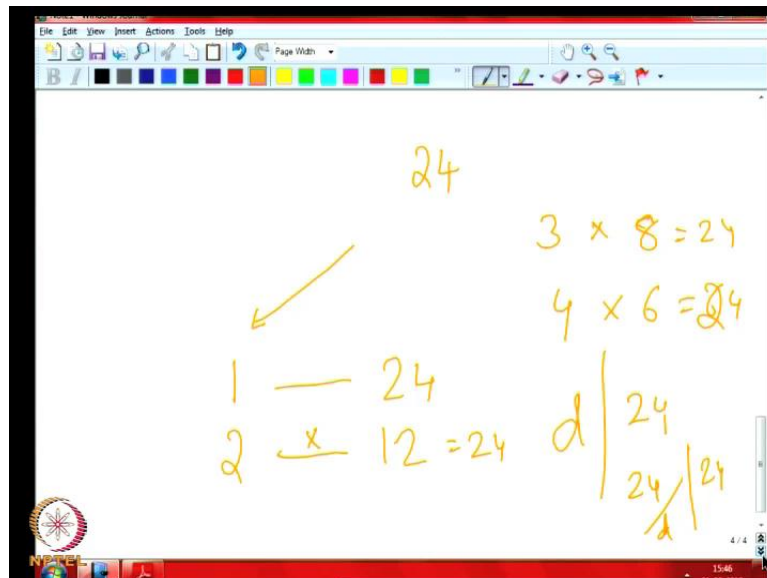 File Edit View Insert Actions Tools Help
Page Width
B I
24
3 x 8 = 24
4 x 6 = 24
1 — 24
2 x 12 = 24
d | 24
24/d | 24
4 / 4
NPTEL
15:46